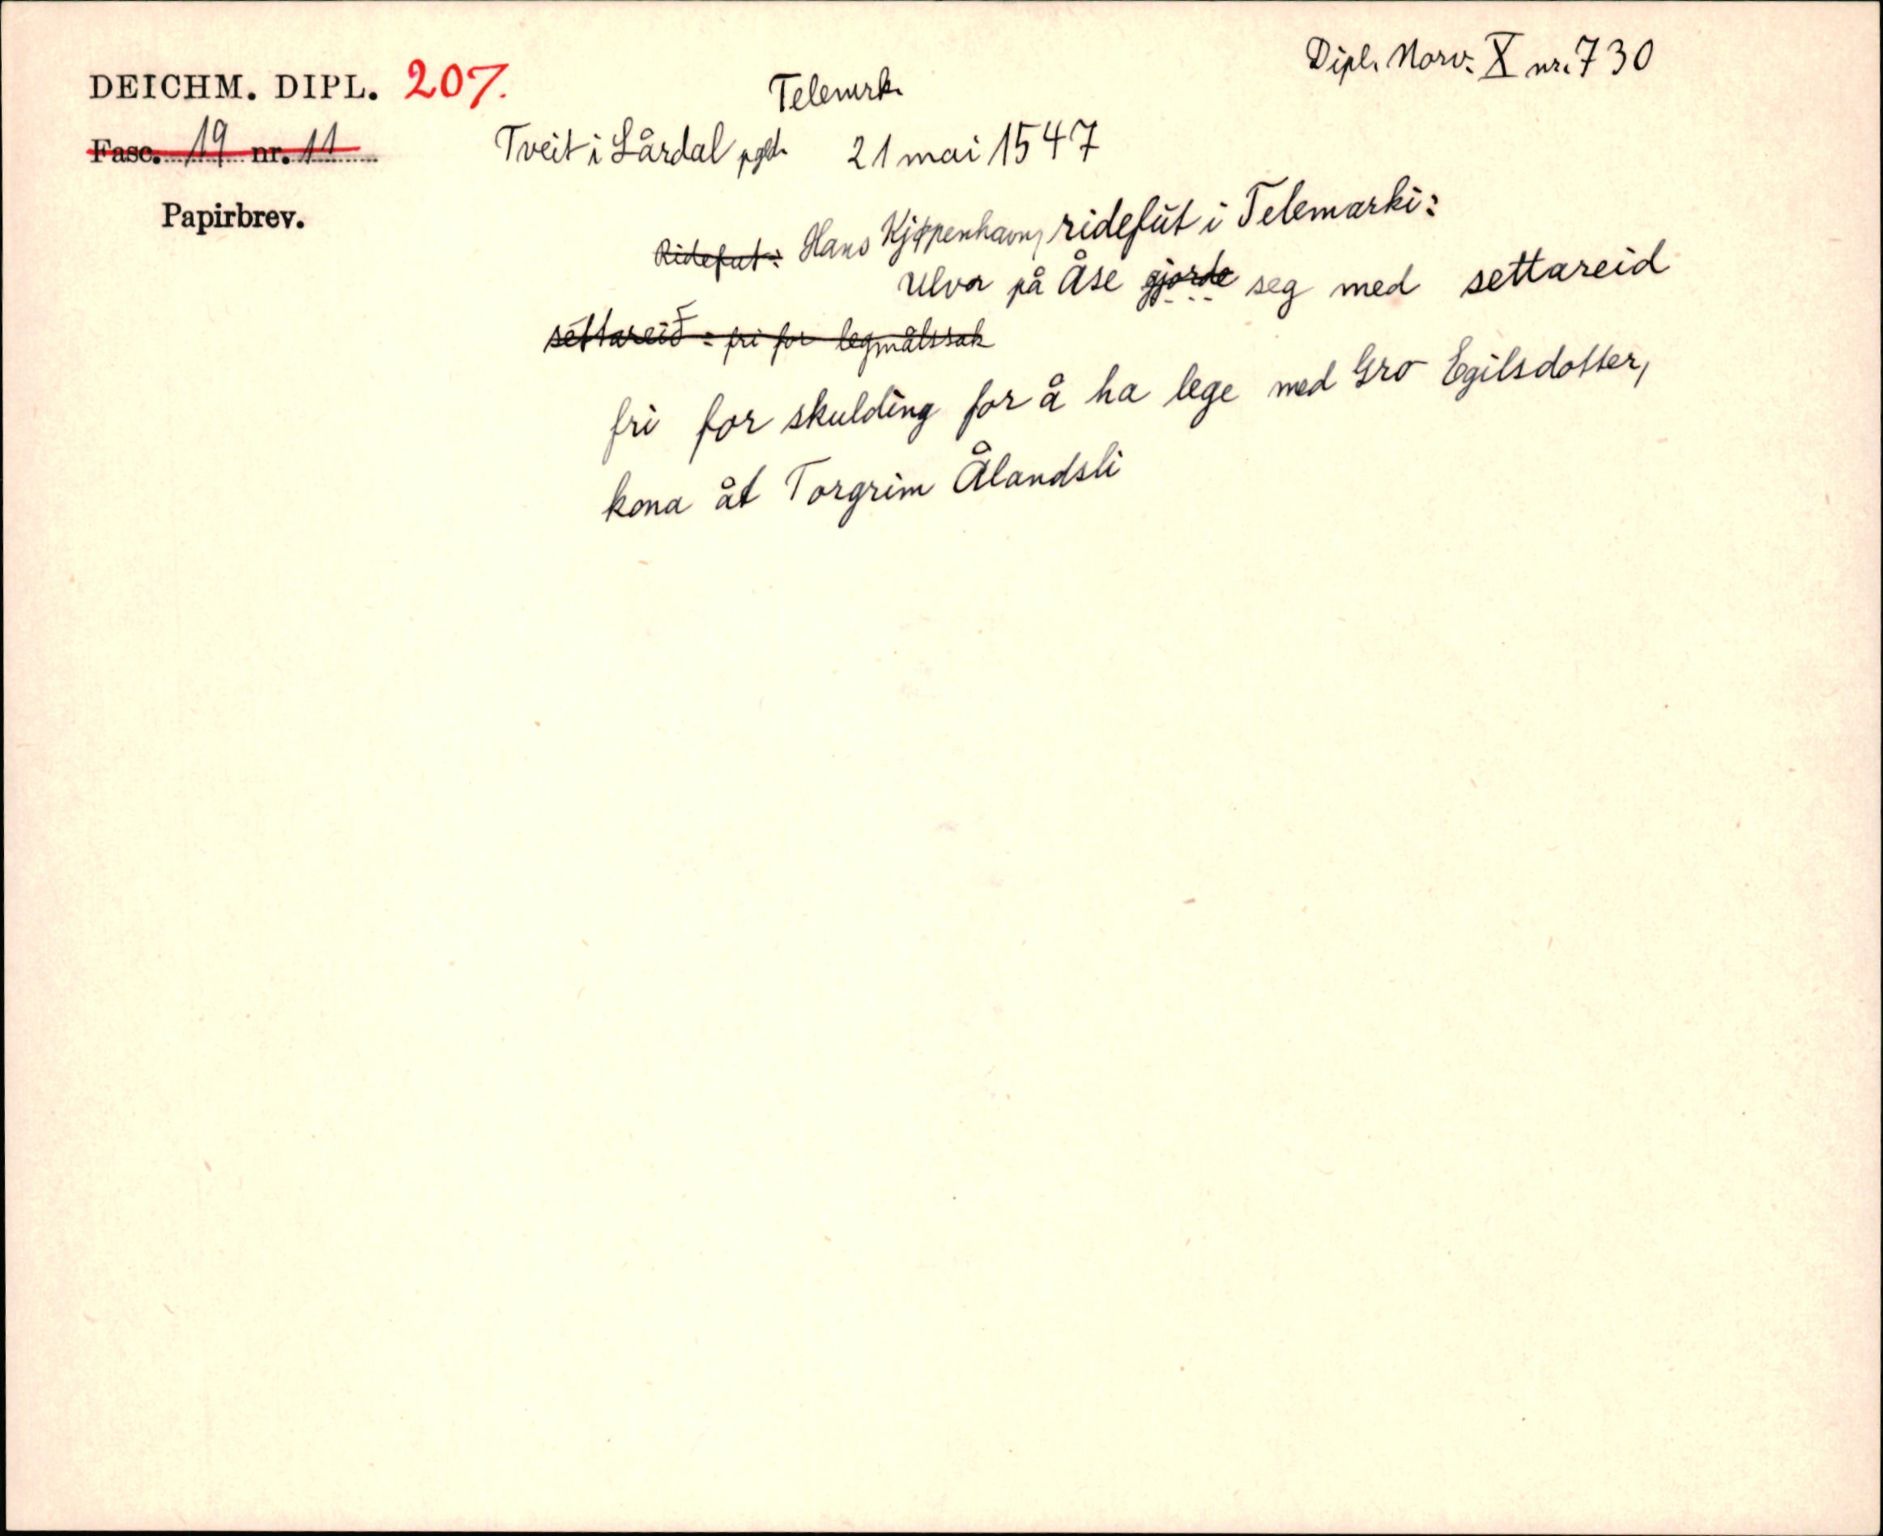 DEICHM. DIPL. 207.
Dipl. Norv. X nr. 730
Telemrk.
Fasc. 19 nr. 11
Tveit i Lårdal pgld. 21 mai 1547
Papirbrev.
Ridefut: Hans Kjøpenhavn, ridefut i Telemarki:
Ulvor på Åse gjorde seg med settareid
settareid: fri for legmålssak
fri for skulding for å ha lege med Gro Egilsdotter,
kona åt Torgrim Ålandsli